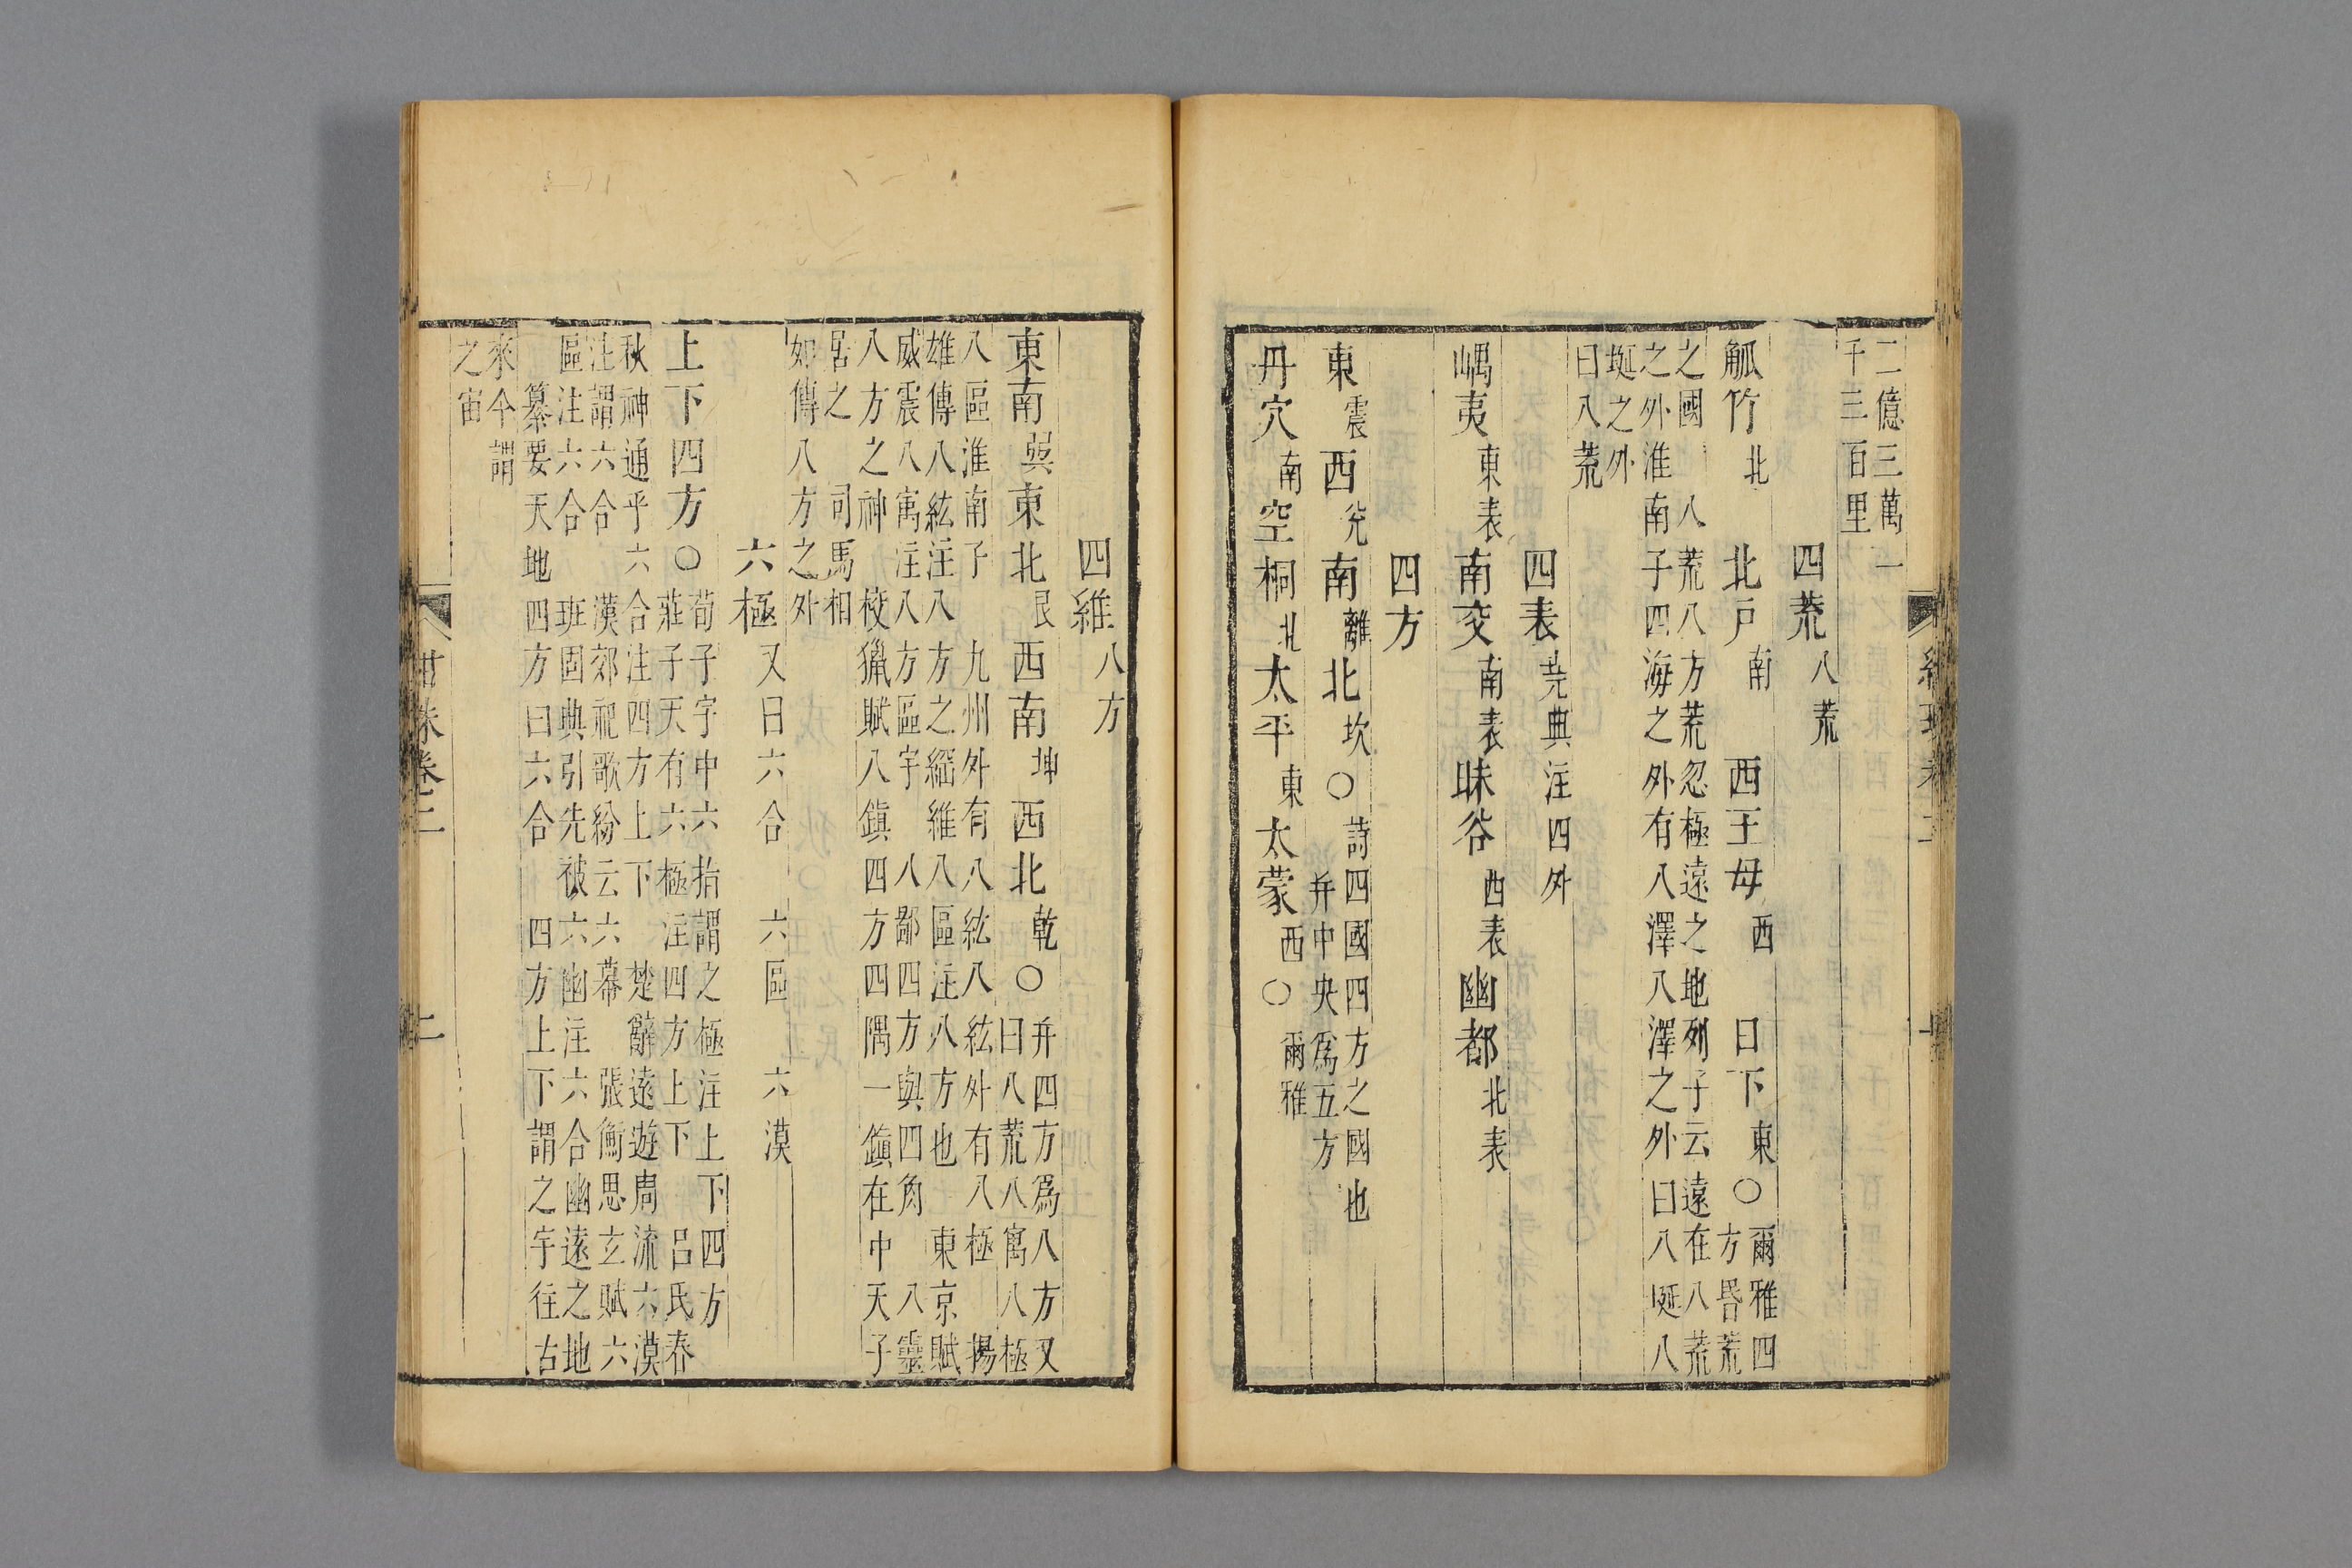 二億三萬一
千三百里
四荒 八荒
觚竹北 北戶南 西王母西 日下東○爾雅四
方昏荒
之國 八荒八方荒忽極遠之地列子云遠在八荒
之外淮南子四海之外有八澤八澤之外曰八埏八
埏之外
曰八荒
四表 堯典注四外
嵎夷東表南交南表昧谷西表幽都北表
四方
東震西兊南離北坎○詩四國四方之國也
并中央爲五方
丹穴南空桐北太平東太蒙西○爾雅
四維 八方
東南巽東北艮西南坤西北乾○并四方爲八方又
曰八荒八寓八極
八區淮南子 九州外有八紘八紘外有八極 揚
雄傳八紘注八方之綱維八區注八方也 東京賦
威震八寓注八方區宇 八鄙四方與四角 八靈
八方之神 校獵賦八鎮四方四隅一鎮在中天子
居之 司馬相
如傳八方之外
六極 又曰六合 六區 六漠
上下四方○荀子宇中六指謂之極注上下四方
莊子天有六極注四方上下 呂氏春
秋神通乎六合注四方上下 楚辭遠遊周流六漠
注謂六合 漢郊祀歌紛云六幕 張衡思玄賦六
區注六合 班固典引先被六幽注六合幽遠之地
纂要天地四方曰六合 四方上下謂之宇往古
來今謂
之宙